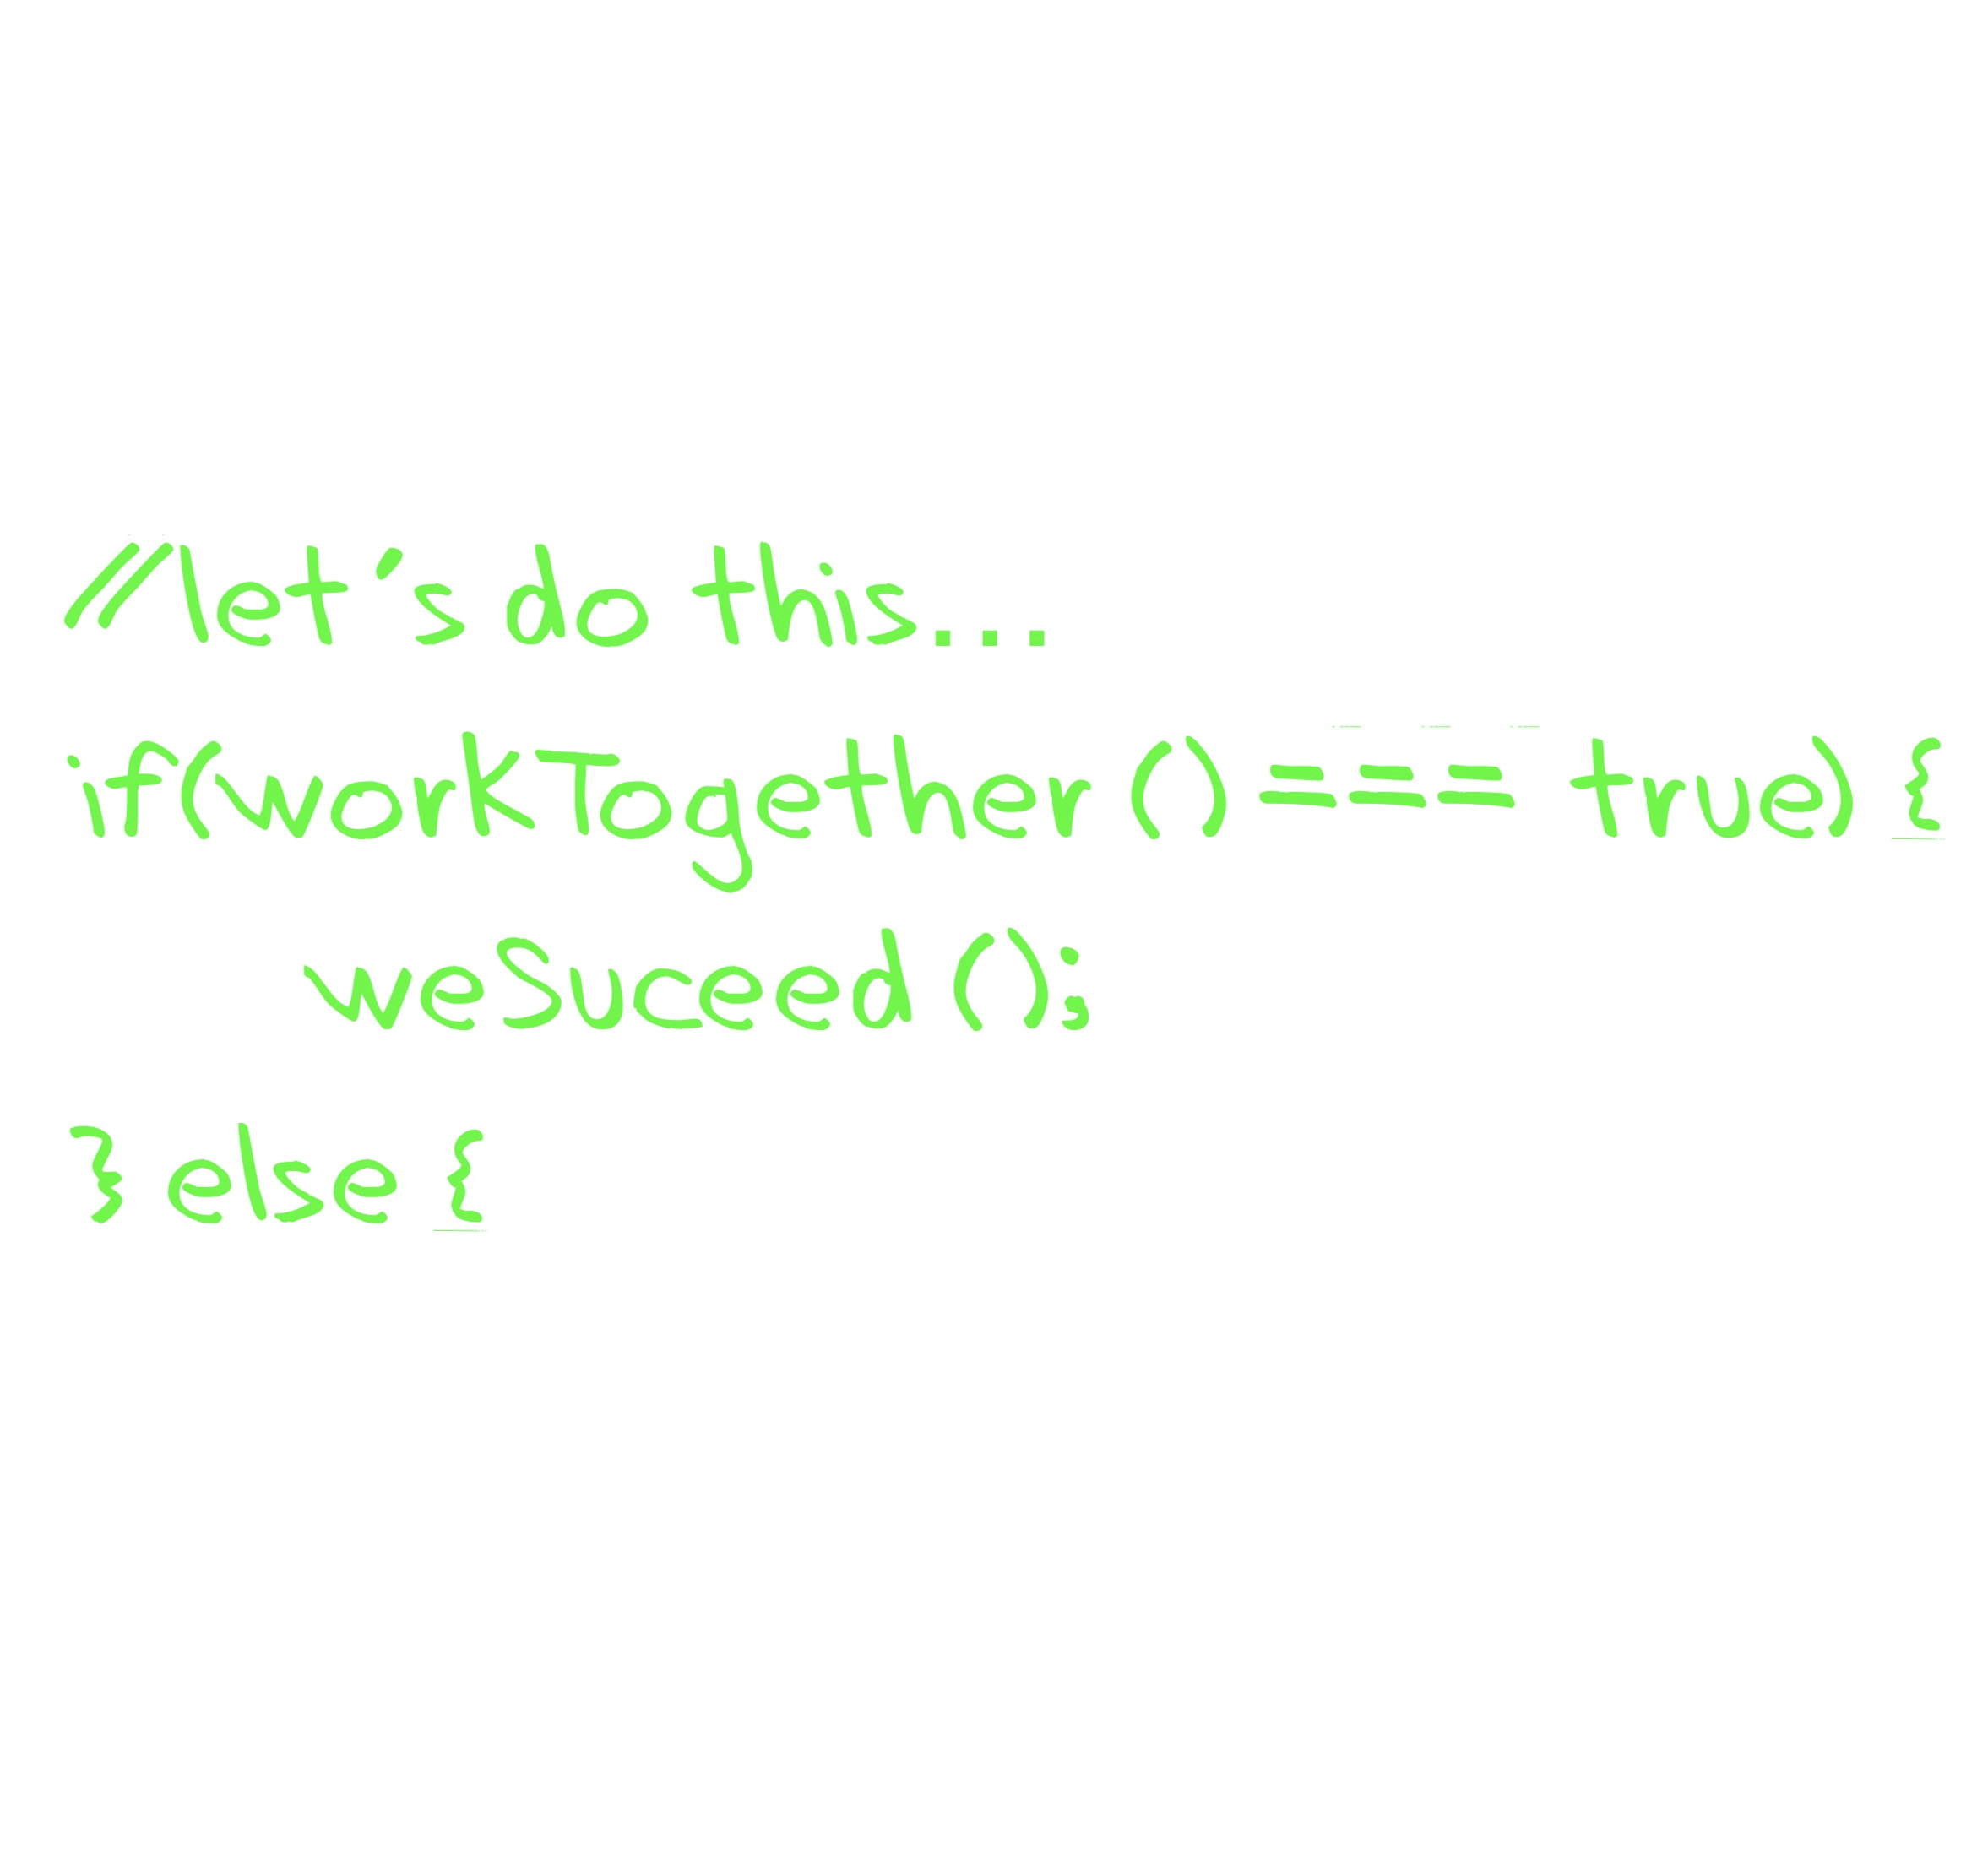 //let's do this...
if(workTogether () === true) {
weSuceed ();
} else {